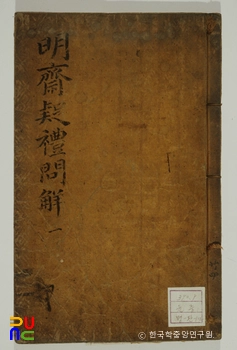 明齋疑禮問解 一
ⓒ 한국학중앙연구원